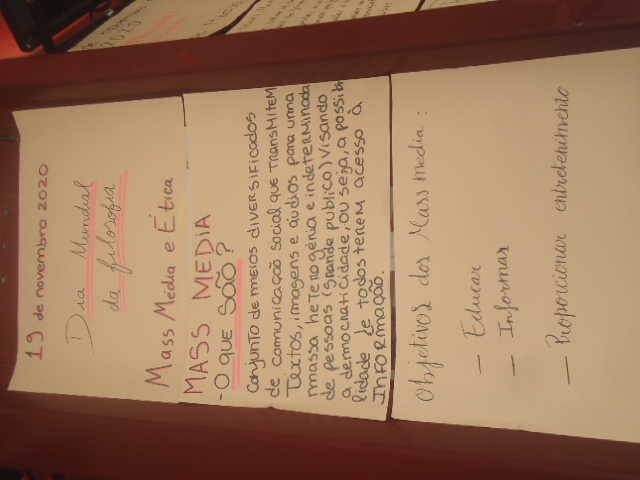 19 de novembro 2020
Dia Mundial
da filosofia
Mass Média e Ética
MASS MEDIA
- O QUE SÃO?
Conjunto de meios diversificados
de comunicação social que TRANSMITEM
Textos, imagens e áudios para uma
massa heterogénia e indeterminada
de pessoas (grande publico) Visando
a democraticidade, ou seja, a possibi
lidade de todos terem acesso à
INFORMAÇÃO.
Objetivos dos Mass media :
— Educar
— Informar
— Proporcionar entretenimento
2020